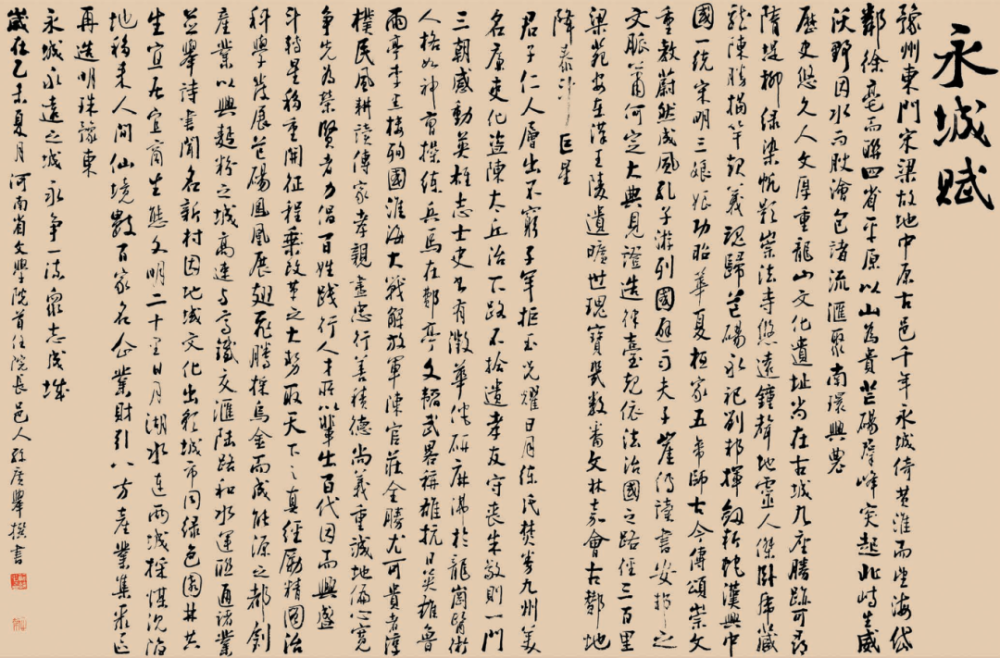 永城赋
豫州東門宋梁故地中原古邑千年永城倚黄淮而望海岱
鄰徐亳而聯四省平原以山為貴芒碭群峰突起此峙生威
沃野因水而肥澮包諸流滙聚南環興農
歷史悠久人文厚重龍山文化遺址尚在古城九座勝跡可尋
隋堤柳绿染帆影崇法寺悠遠鐘聲地靈人傑卧虎藏
龍陳勝揭竿起義魂歸芒碭永祀劉邦揮劍斬蛇漢興中
國一统宋明三娘娘功昭華夏桓家五帝師士今傳頌崇文
重教蔚然成風孔子游列國避司夫子崖傳讀書安邦之
文脈蕭何定大典見證造律臺起依法治國之路徑三百里
梁苑安在漢王陵遺曠世瑰寶幾數番文林嘉會古酇地
降泰斗巨星
君子仁人層出不窮子罕拒玉光耀日月练氏焚券九州美
名廉吏化盗陳太丘治下路不拾遗孝友守丧朱敬則一門
三朝感動英雄志士史有徵華佗研麻沸於龍崗醫術
人格如神曹操练兵馬在酇亭文韜武畧稱雄抗日英雄魯
雨亭李黑樓殉國淮海大戰解放軍陳官莊全勝尤可貴者淳
樸民風耕讀傳家孝親盡忠行善積德尚義重誠地偏心寛
争先為榮賢者力倡百姓践行人才所以輩出百代因而興盛
斗轉星移重開征程乘改革之大勢取天下之真經勵精圖治
科學發展芒碭鳳凰展翅飛騰採烏金而成能源之都創
產業以興麵粉之城高速与高鐵交滙陆路和水運聯通諸業
並舉詩書聞名新村因地域文化出彩城市同绿色園林共
生宜居宜商生態文明二十里日月湖水連兩城採煤沉陷
地移来人間仙境數百家名企業財引八方產業集聚區
再造明珠豫東
永城永遠之城永争一流眾志成城
歲在乙未夏月河南省文學院首任院長邑人孫廣舉撰書